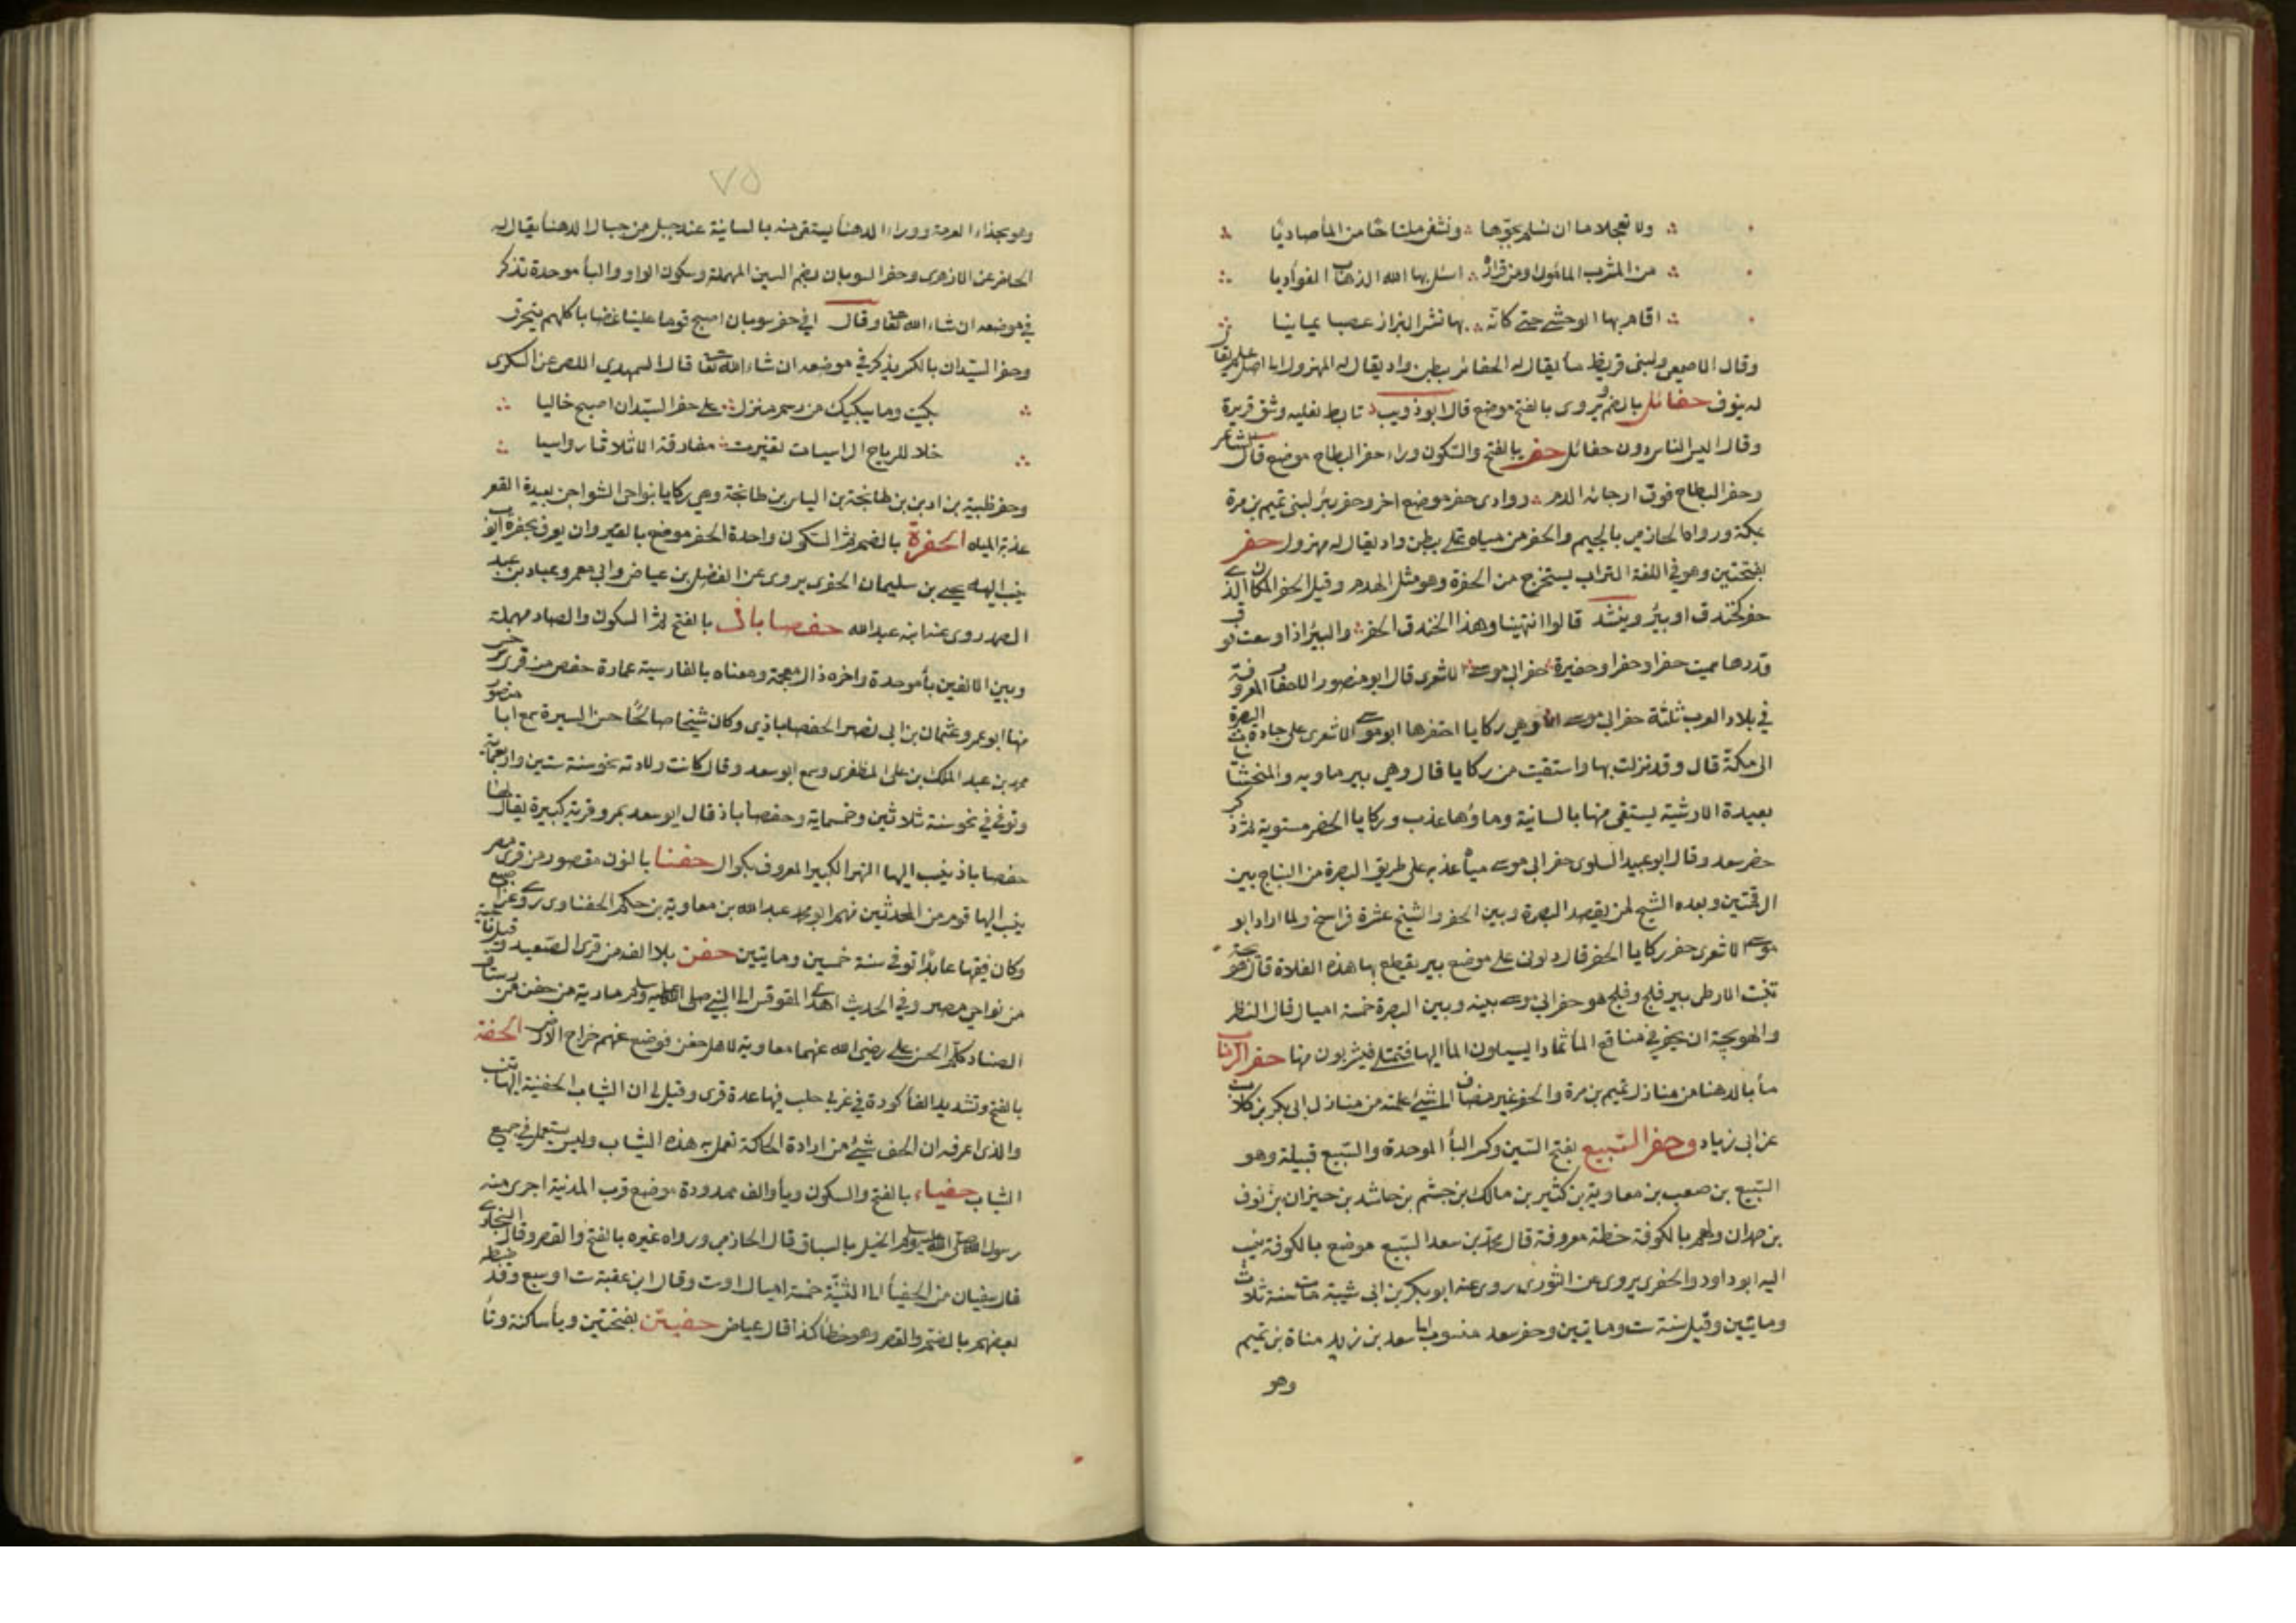 ولا تعجلا ما ان نسلم بجوها ونشف ملتاحا من المأ صاديا
من المشرب المأمول ومن قرارة اسئل بها الله الذهاب الغواديا
اقام بها الوحشي حتى كانه بها نشر البزاز عصبا يمانيا
وقال الاصمعي ولبنى قريظ مأ يقال له الحفائر ببطن واد يقال له المهزول الى اصل علم يقال
له ينوف حفائل بالضم ويروى بالفتح موضع قال ابو ذويب تابط نعليه وشق فريرة
وقال اليس الناس دون حفائل حفر بالفتح والسكون وراء حفر البطاح موضع قال الشاعر
وحفر البطاح فوق ارجائه الدم ووادى حفر موضع اخر وحفر بئر لبنى تميم بن مرة
بمكة ورواه الحازمي بالجيم والحفر من مياه نملى ببطن واد يقال له مهزول حفر
بفتحتين وهو في اللغة التراب يستخرج من الحفرة وهو مثل الهدم وقيل الحفر المكان الذى
حفر كخندق او بئر وينشد قالوا انتهينا وهذا الخندق الحفر والبير اذا وسعت فوق
قدرها سميت حفرا وحفرا وحفيرة حفر ابى موسى الاشعرى قال ابو منصور الاحفار المعروفة
في بلاد العرب ثلثة حفر ابى موسى وهي ركايا احتفرها ابو موسى الاشعرى على جادة البصرة
الى مكة قال وقد نزلت بها واستقيت من ركايا قال وهي بير ماويه والمنجشانيات
بعيدة الارشية يستقى منها بالسانية وماؤها عذب وركايا الحفر مستوية ثم ذكر
حفر سعد وقال ابو عبيد السلوى حفر ابى موسى مياه عذبه على طريق البصرة من النباج بين
الرقمتين وبعده الشيح لمن يقصد البصرة وبين الحفر والشيح عشرة فراسخ ولما اراد ابو
موسى الاشعرى حفر ركايا الحفر قال دلونى على موضع بير يقطع بها هذه الفلاة قالوا هوبجة
تنبت الارطى بير فلج وفلج هو حفر ابى موسى بينه وبين البصرة خمسة اميال قال النظر
والهوبجة ان يحفر في مناقع المأ ثمادا يسيلون المأ اليها فتمتلى فيشربون منها حفر الرباب
مأ بالدهنا من منازل تميم بن مرة والحفر غير مضاف الى شئ علمته من منازل ابى بكر بن كلاب
عن ابى زياد وحفر السّبيع بفتح السين وكسر البأ الموحدة والسّبيع قبيلة وهو
السّبيع بن صعب بن معاوية بن كثير بن مالك بن جشم بن حاشد بن خيزان بن نوف
بن همدان ولهم بالكوفة خطة معروفة قال محمد بن سعد السّبيع موضع بالكوفة ينسب
اليه ابو داود الحفرى يروى عن الثورى روى عنه ابو بكر بن ابى شيبة مات سنة ثلاث
ومايتين وقيل سنة ست ومايتين وحفر سعد منسوب الى سعد بن زيد مناة بن تميم
وهو
٧٥
وهو بحذاء العرمة ووراء الدهنأ يستقى منه بالسانية عند جبل من جبال الدهنأ يقال له
الحاضر عن الازهرى وحفر السوبان بضم السين المهملة وسكون الواو والبأ موحدة تذكر
في موضعه ان شاء الله تعا وقال افي حفر سوبان اصبح قوما علينا غضابا كلهم يتحرق
وحفر السّيدان بالكسر يذكر في موضعه ان شاء الله تعا قال السمهري اللص عن السكرى
بكيت وما يبكيك من رسم منزل على حفر السّيدان اصبح خاليا
خلا للرياح الراسيات تغيرت معارفه الا ثلاثا رواسيا
وحفر ظبية بن اد بن بن طابخة بن الياس بن طابخة وهي ركايا بنواحى الشواجن بعيدة القعر
عذبة المياه الحفرة بالضم ثم السكون واحدة الحفر موضع بالقيروان يعرف بحفرة ايوب
ينسب اليها يحيى بن سليمان الحفرى يروى عن الفضيل بن عياض وابى معمر وعباد بن عبد
الصمد روى عنه ابنه عبد الله حفصاباذ بالفتح ثم السكون والصاد مهملة
وبين الالفين بأ موحدة واخره ذال معجمة ومعناه بالفارسية عمارة حفص من قرى سرخس
منها ابو عمرو عثمان بن ابى نصر الحفصاباذي وكان شيخا صالحا حسن السيرة سمع ابا منصور
محمد بن عبد الملك بن على المظفرى وسمع ابو سعد وقال كانت ولادته نحو سنة ستين واربعماية
وتوفى في نحو سنة ثلاثين وخمسماية وحفصاباذ قال ابو سعد بمرو قرية كبيرة يقال لها
حفصاباذ ينسب اليها النهر الكبير المعروف بكوال حفنا بالنون مقصور من قرى مصر
ينسب اليها قوم من المحدثين منهم ابو محمد عبد الله بن معاوية بن حكم الحفناوى روى عن اصبغ
وكان فقيها عابدا توفى سنة خمسين ومايتين حفن بلا الف من قرى الصّعيد وقيل ناحية
من نواحى مصر وفي الحديث اهدى المقوقس الى النبى صلى الله عليه وسلم مارية من حفن من رستاق
انصنا وكلم الحسن على رضى الله عنهما معاوية لاهل حفن فوضع عنهم خراج الارض الحفة
بالفتح وتشديد الفأ كورة في غربى حلب فيها عدة قرى وقيل لى ان الثياب الحفنية اليها تنسب
والذى اعرفه ان الحف شئ من ارادة الحاكة تعمل به هذه الثياب وليس يستعمل في جميع
الثياب حفياء بالفتح والسكون ويأ والف ممدودة موضع قرب المدينة اجرى منه
رسول الله صلى الله عليه وسلم الخيل بالسباق قال الحازمى ورواه غيره بالفتح والقصر وقال البخارى
قال سفيان من الحفيأ الى الثنيّة خمسة اميال او ست وقال ابن عقبة ست او سبع وقد ضبطه
بعضهم بالضم والقصر وهو خطأ كذا قال عياض حفيتن بفتحتين ويأ ساكنة وتأ